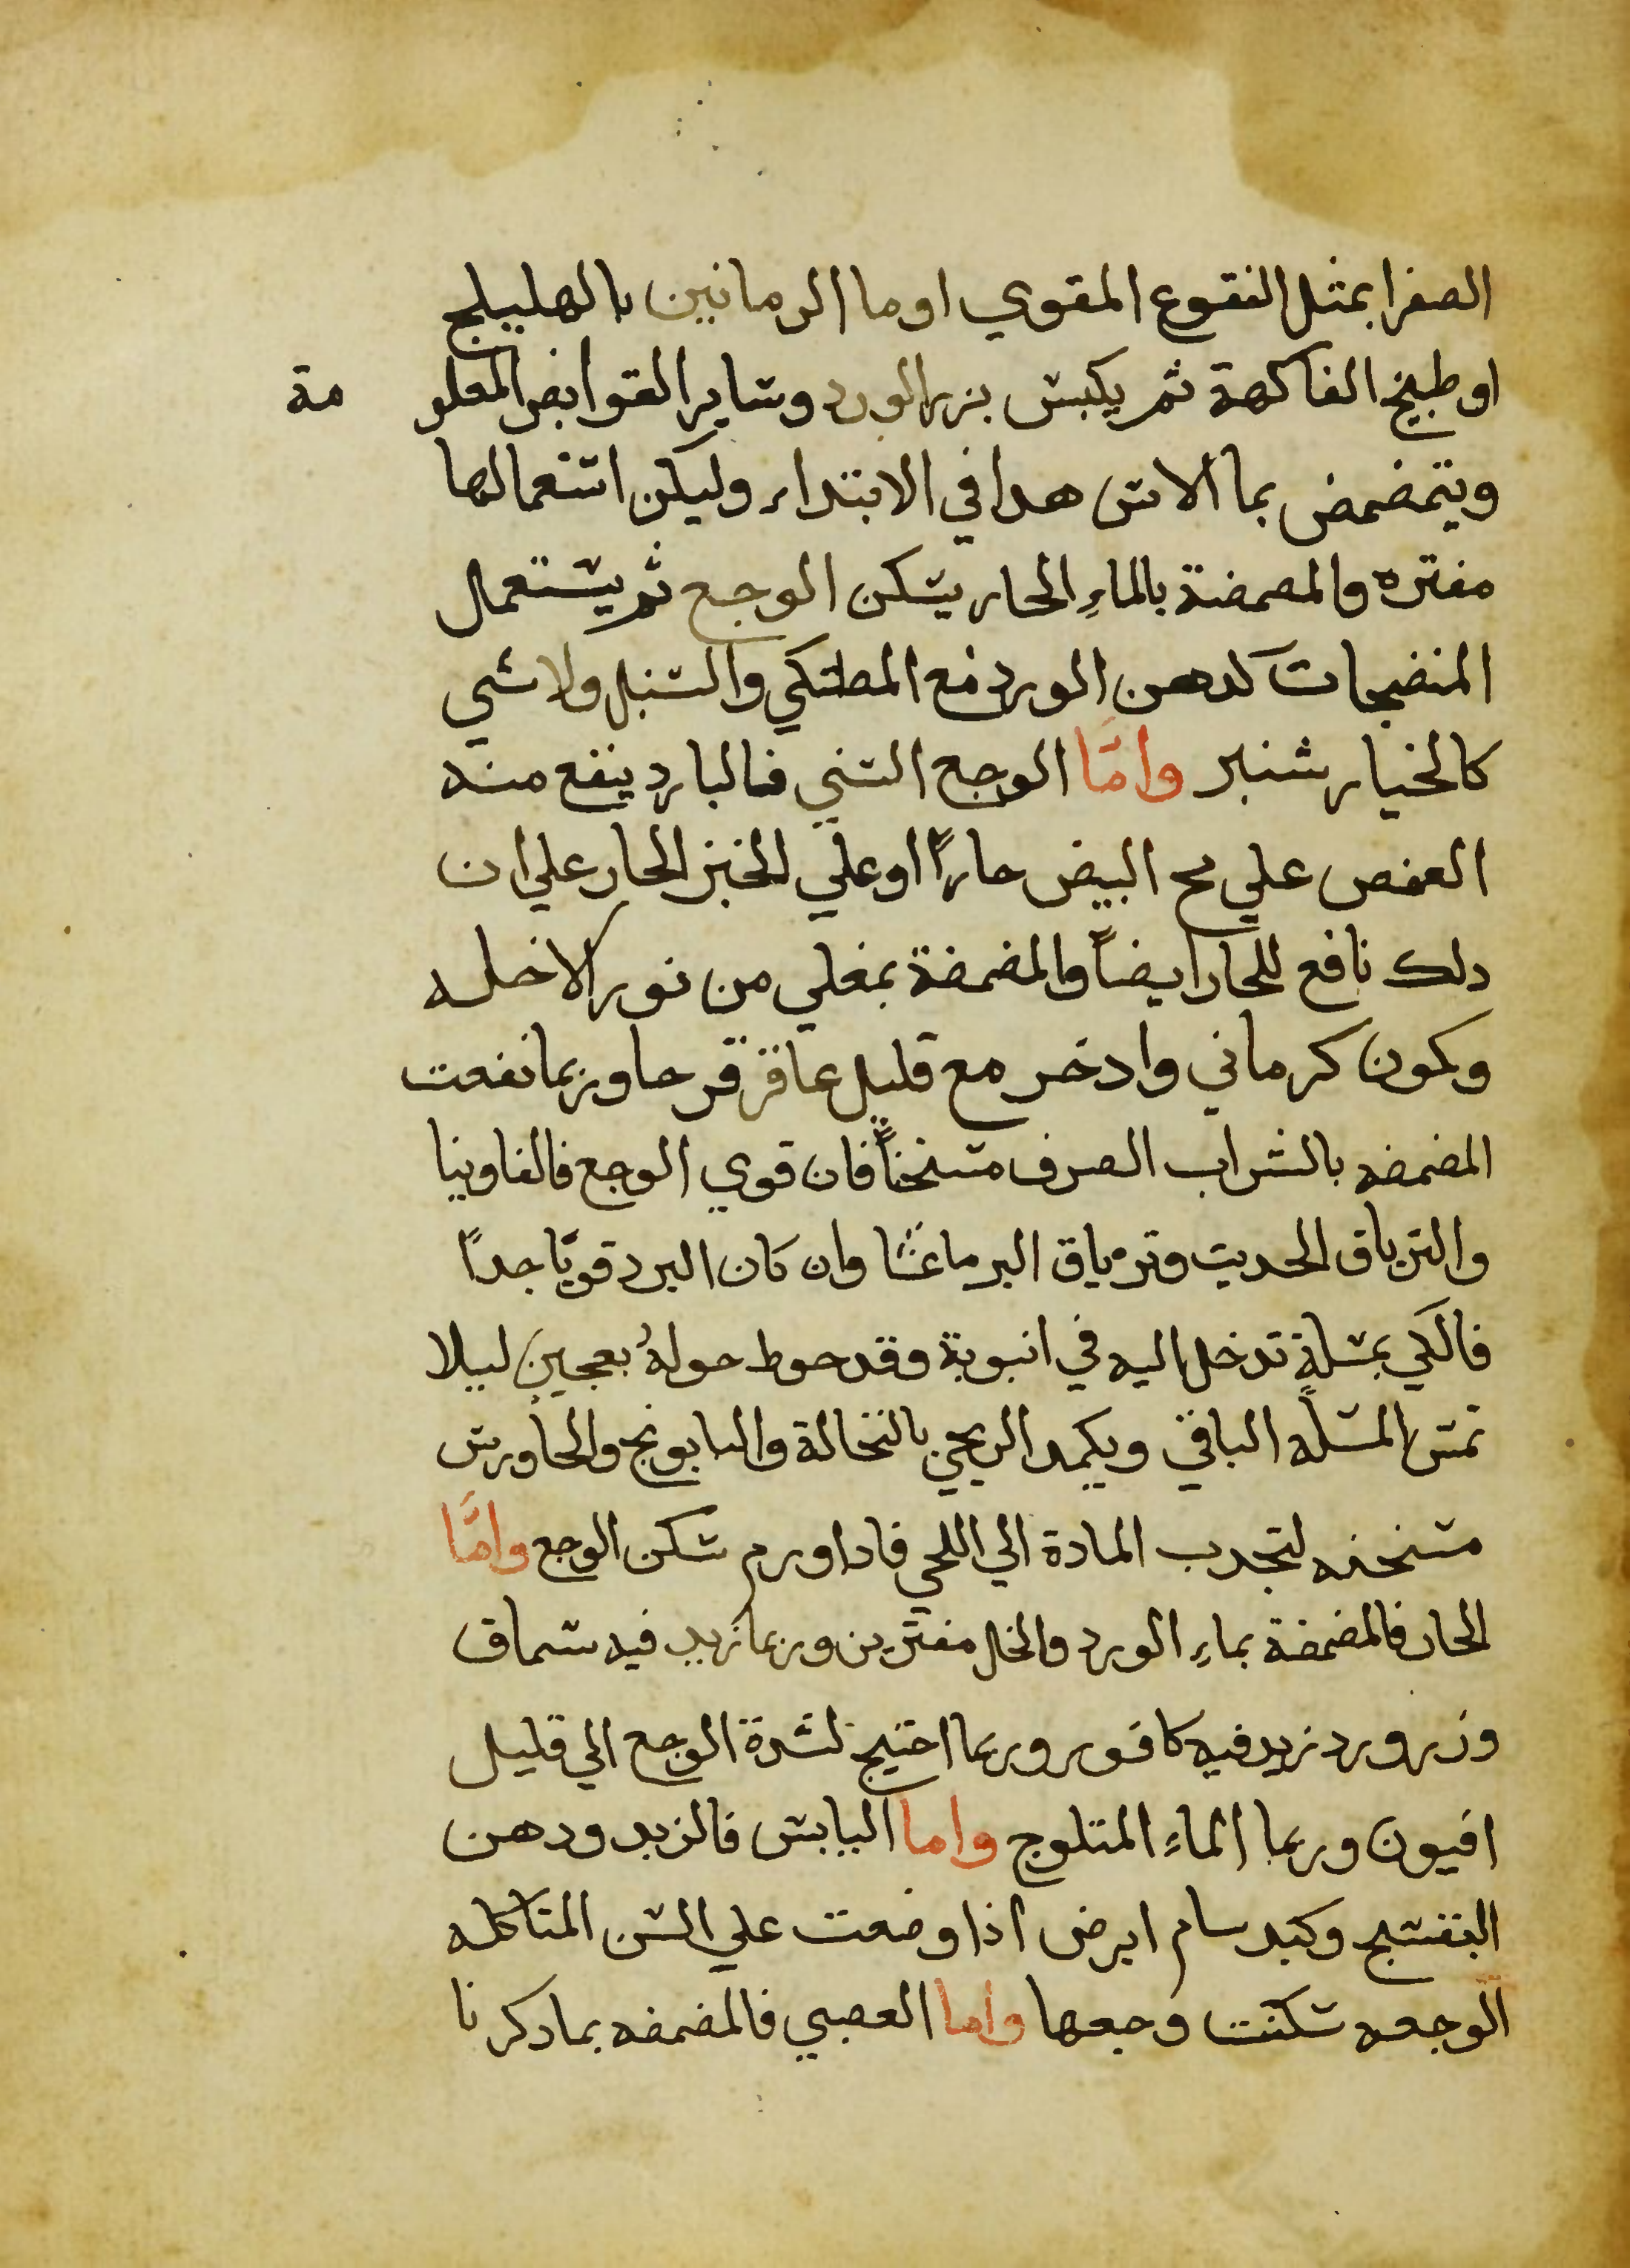 الصفرا بمثل النقوع المقوي او ما الرمانين بالهليلج
او طبيخ الفاكهة ثم يكبس بزر الورد وساير القوابض المعلومة
ويتمضمض بما الاس هدا في الابتداء وليكن استعمالها
مفتره والمصمضة بالماءِ الحار يسكن الوجع ثم يستعمال
المنضجات كدهن الورد مع المصطكي والسنبل ولا شي
كالخيار شنبر وامَّا الوجع السني فالبارد ينفع منه
العفص علي مح البيض حارًا او علي الخبز الحار علي ان
دلك نافع للحار ايضاً والمضمضة بمغلي من نور الاخله
وكمون كرماني وادخر مع قليل عاقر قرحا وربما نفعت
المضمضه بالشراب الصرف مسخناً فان قوي الوجع فالفاونيا
والترياق الحديث وترياق البرماعشا وان كان البرد قويّا جدًا
فالكي بمسلةٍ تدخل اليه في انبوبة وقد حوط حولهُ بعجينٍ ليلا
تمس المسله الباقي ويكمد الريحي بالنخالة والبابونج والجاورس
مسخنه لتجدب المادة الي اللحي فادا ورم سكن الوجع وامَّا
الحار فالمضمضة بماءِ الورد والخل مفترين وربما زيد فيه سماق
وزر ورد زيد فيه كافور وربما احتيج لشدة الوجع الي قليل
افيون وربما الماءِ المتلوج واما اليابس فالزبد ودهن
البنفسج وكبد سام ابرص اذا وضعت علي السن المتاكله
الوجعه سكنت وجعها واما العصبي فالمضمضه بما دكرنا